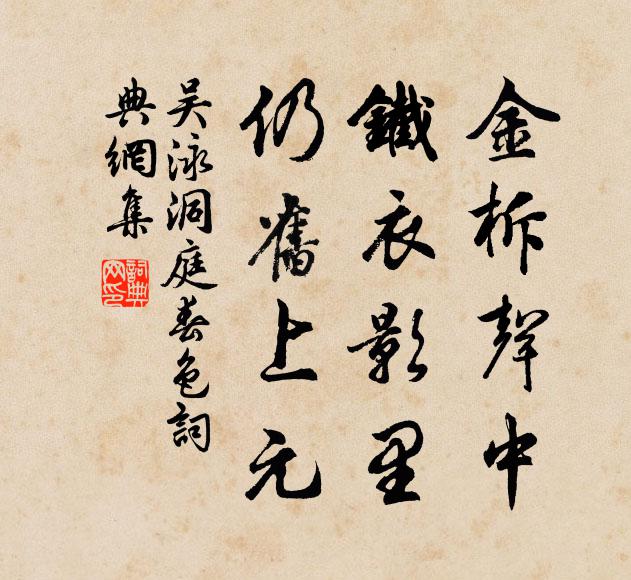 金柝聲中
鐵衣影里
仍舊上元
吳泳洞庭春色詞
典網集
詞典
网印